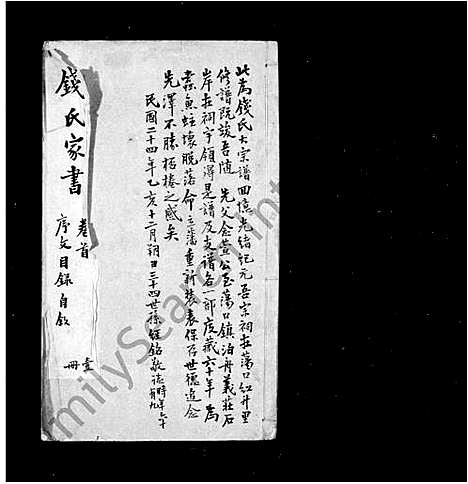 此為錢氏大宗譜回憶光緒紀元吾宗祠在蕩口江井里
修譜既竣吾隨 先父念萱公至蕩口鎮泊舟義莊石
岸在祠宇領得是譜及支譜各一部庋藏六十年為
蠹魚蛀壞脫落命立藩重新裝表保存世德追念
先澤不勝桮棬之感矣
民國二十四年乙亥十二月朔日三十四世孫 銘敬誌時年六十有九
錢氏家書 卷首
序文目錄自敘
壹冊
milySearch.int